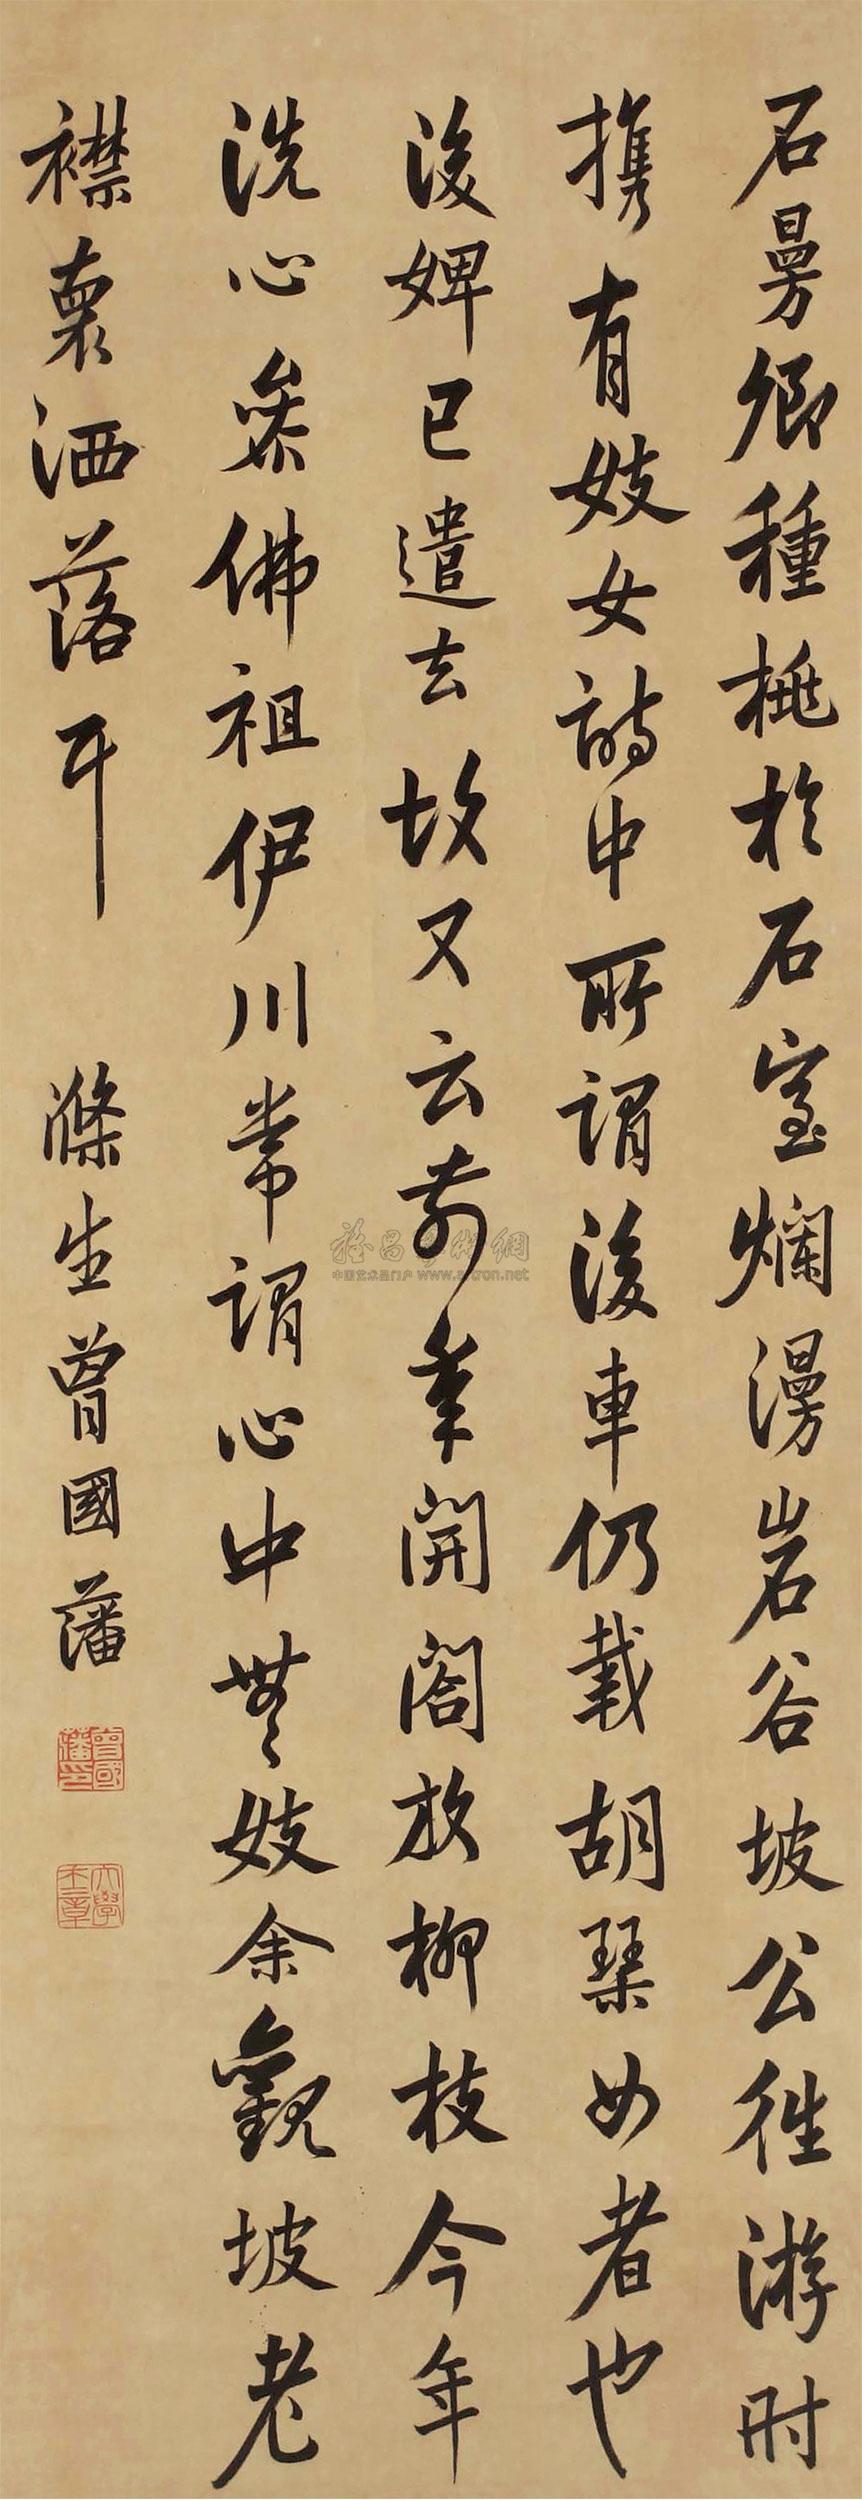 石曼卿種桃於石室爛漫岩谷坡公往游时
携有妓女詩中所謂後車仍載胡琴女者也
後婢已遣去故又云前年開閤放柳枝今年
洗心叅佛祖伊川常謂心中無妓余觀坡老
襟褱洒落耳
滌生曾國藩
曾國藩印
大學士章
中国艺术品门户 www.artron.net